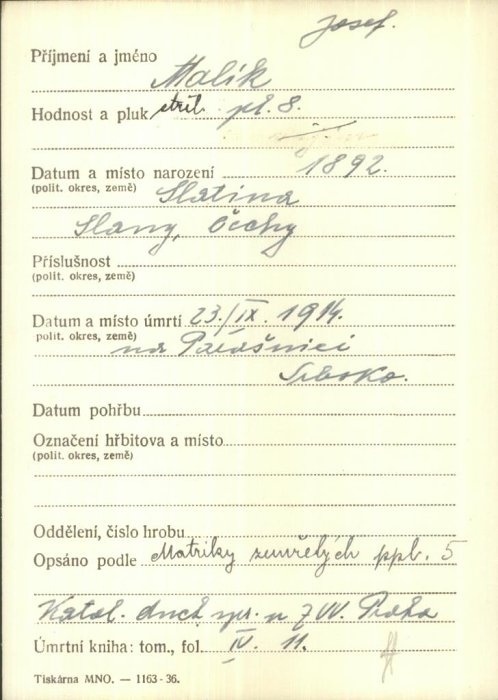 Josef.
Příjmení a jméno
Malík
Hodnost a pluk stříl. pl. 8.
Datum a místo narození 1892.
(polit. okres, země) Slatina
Slany, Čechy
Příslušnost
(polit. okres, země)
Datum a místo úmrtí 23./IX. 1914.
polit. okres, země)
na Parašnici
Srbsko.
Datum pohřbu
Označení hřbitova a místo
(polit. okres, země)
Oddělení, číslo hrobu
Opsáno podle Matriky zemřelých ppl. 5
Katol. duch. spr. u ZVV. Praha
Úmrtní kniha: tom., fol. IV. 11.
Tiskárna MNO. — 1163-36.